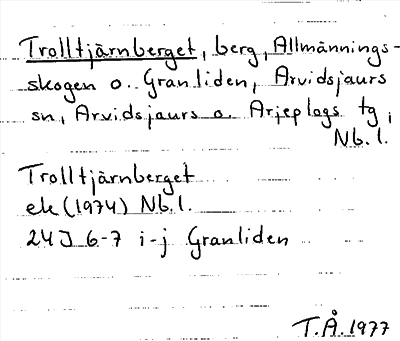 Trolltjärnberget, berg, Allmännings-
skogen o. Granliden, Arvidsjaurs
sn, Arvidsjaurs o. Arjeplogs tg,
Nb. l.
Trolltjärnberget
ek (1974) Nb. l.
24J 6-7 i-j Granliden
T.Å. 1977